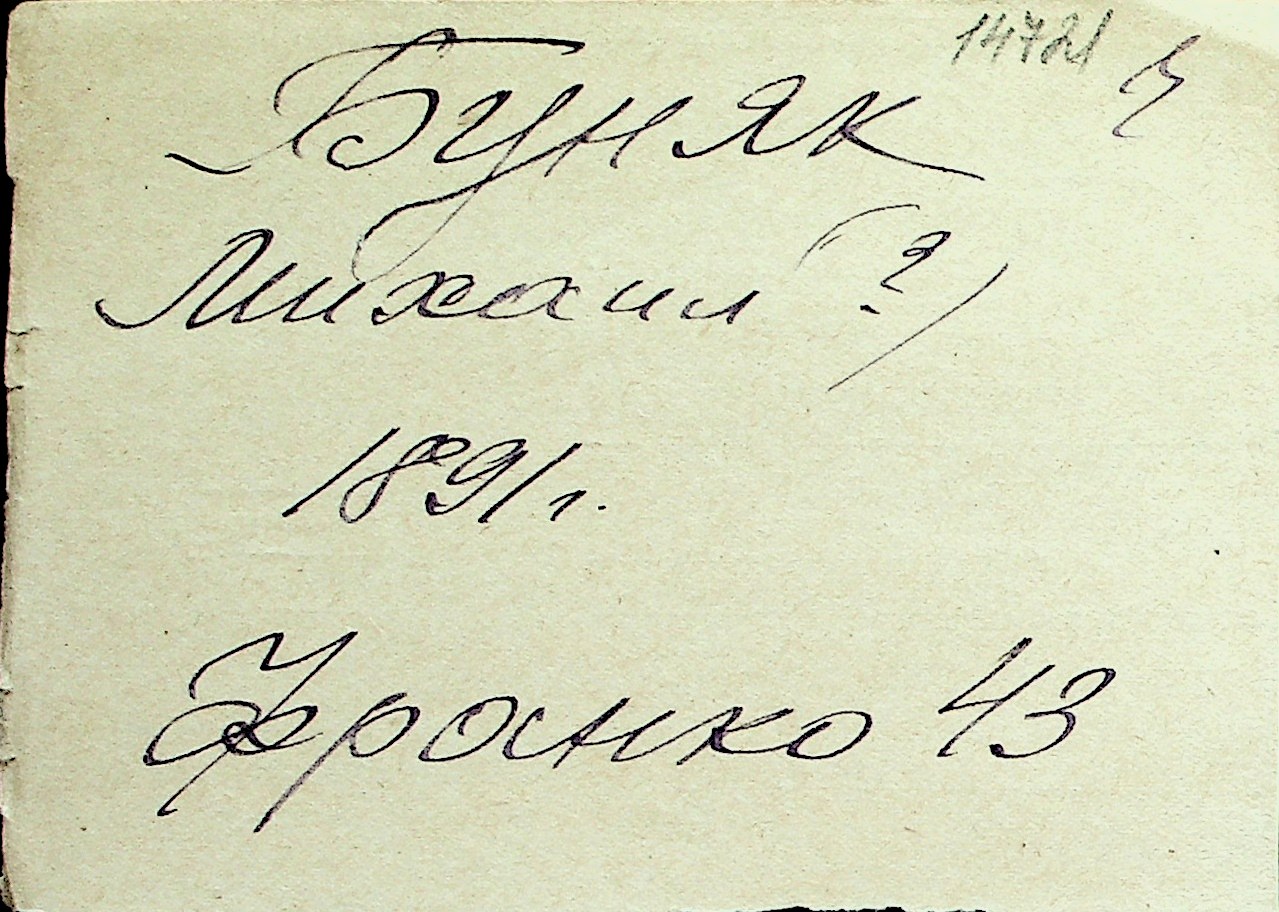 14721
Буняк
Михаил (?)
1891 г.
Франко 43